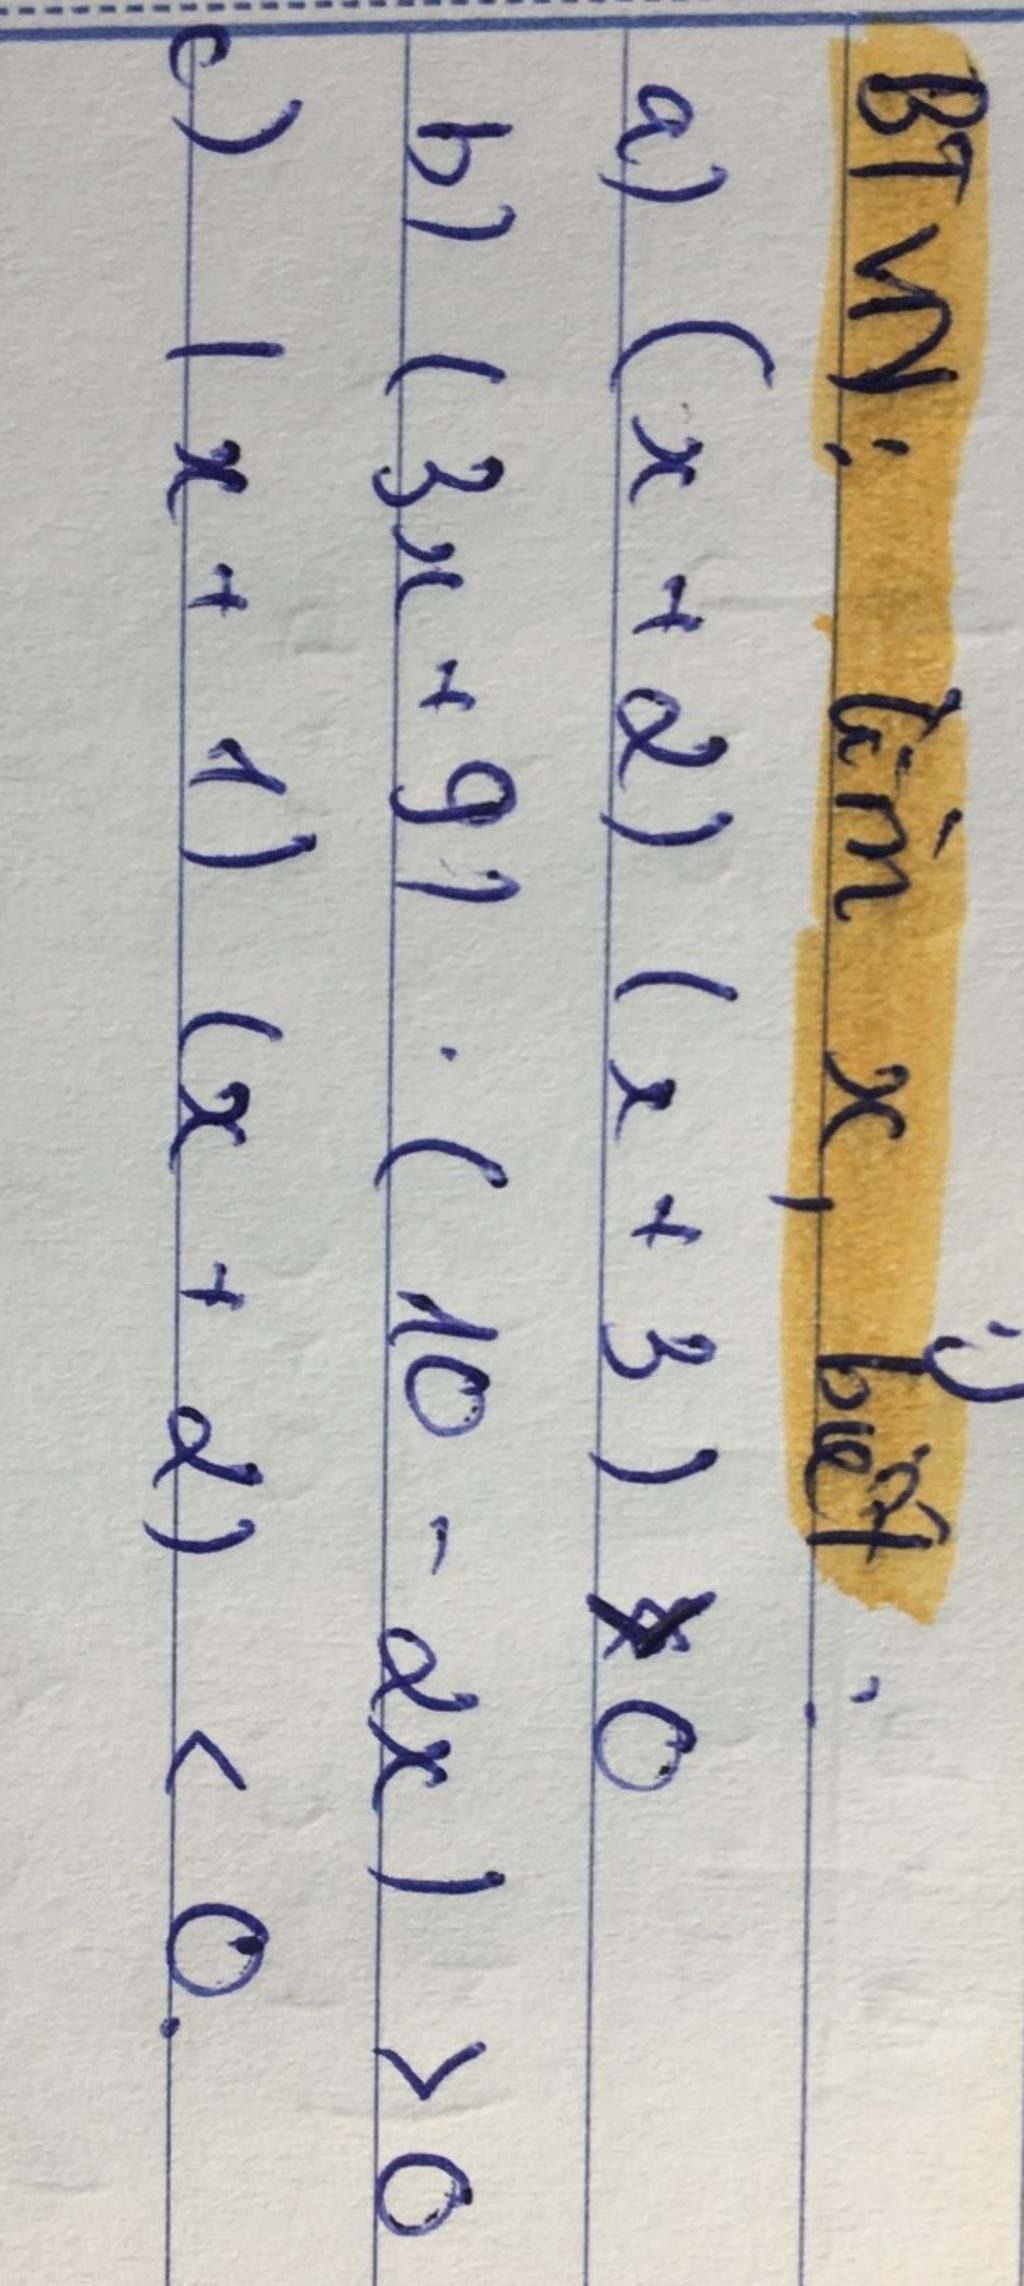 BTVN: Tìm x, biết:
a) (x + 2) (x + 3) > 0
b) (3x + 9) . (10 - 2x) > 0
c) (x + 1) (x + 2) < 0.